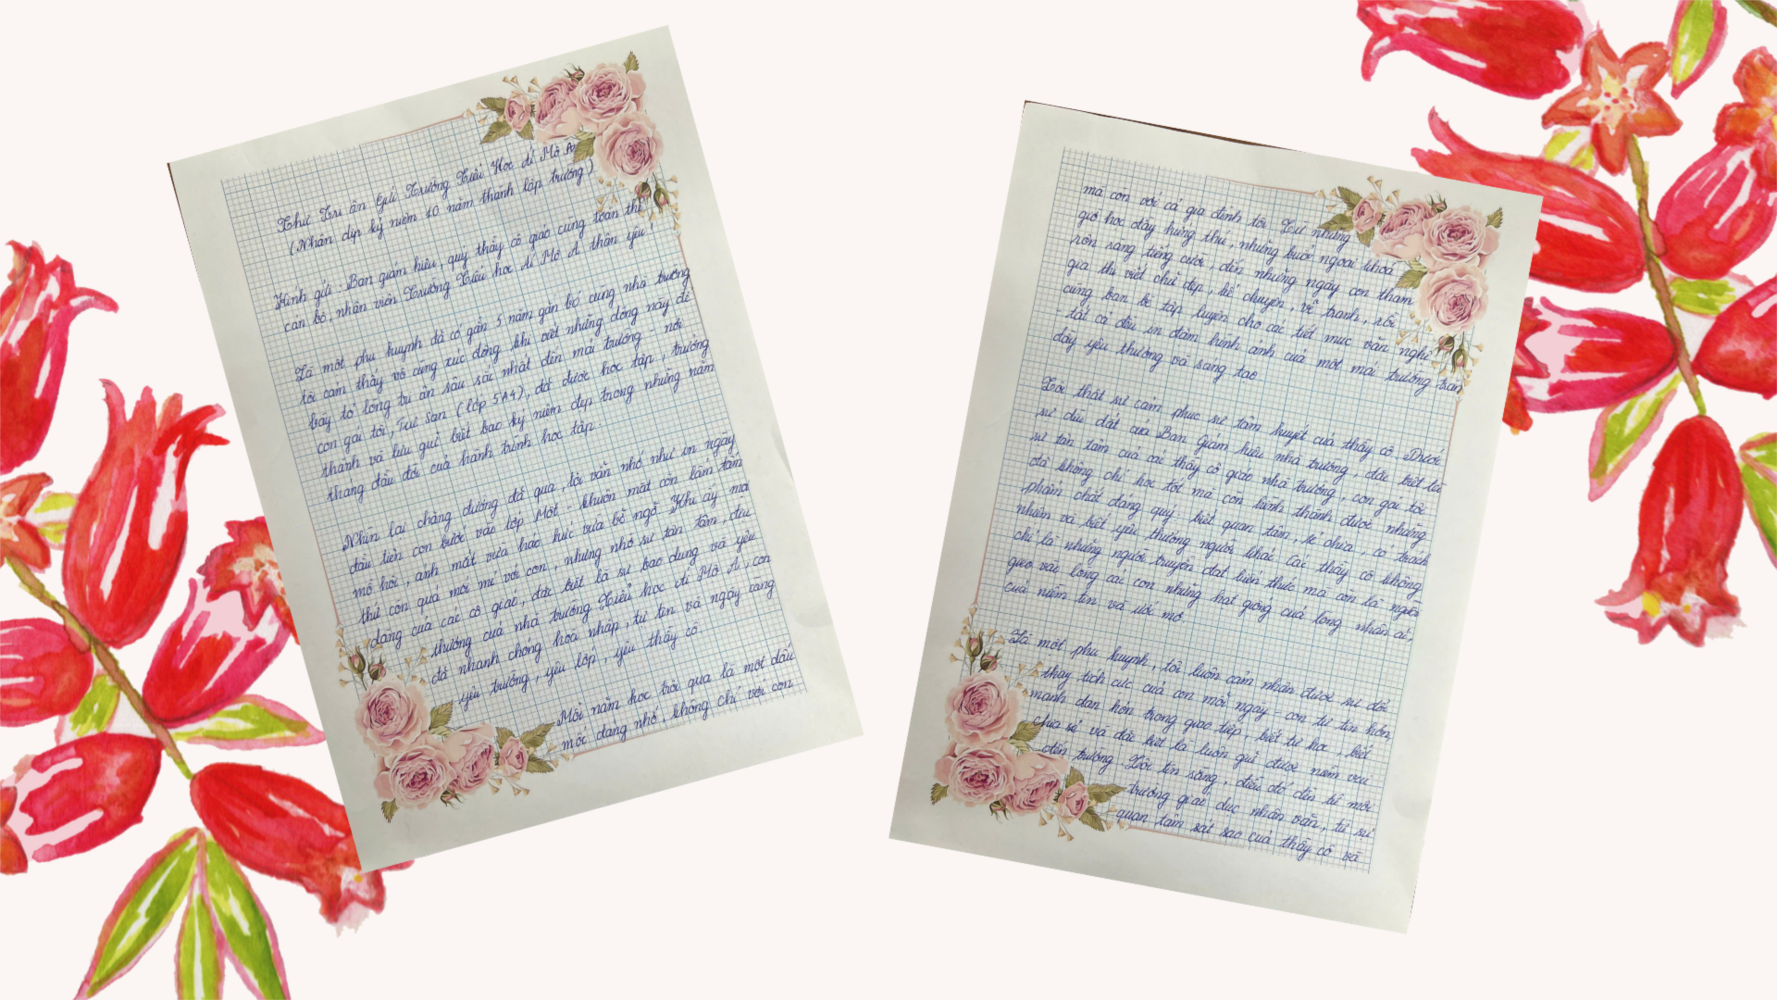 Thư Tri ân Gửi Trường Tiểu Học Ái Mộ A
(Nhân dịp kỷ niệm 10 năm thành lập trường)
Kính gửi: Ban giám hiệu, quý thầy cô giáo cùng toàn thể
cán bộ, nhân viên Trường Tiểu học Ái Mộ A thân yêu!
Là một phụ huynh đã có gần 5 năm gắn bó cùng nhà trường
tôi cảm thấy vô cùng xúc động khi viết những dòng này để
bày tỏ lòng tri ân sâu sắc nhất đến mái trường - nơi
con gái tôi, Tuệ San (lớp 5A4), đã được học tập, trưởng
thành và lưu giữ biết bao kỷ niệm đẹp trong những năm
tháng đầu đời của hành trình học tập.
Nhìn lại chặng đường đã qua, tôi vẫn nhớ như in ngày
đầu tiên con bước vào lớp Một - khuôn mặt còn lấm tấm
mồ hôi, ánh mắt vừa háo hức vừa bỡ ngỡ. Khi ấy mọi
thứ còn quá mới mẻ với con, nhưng nhờ sự tận tâm, dịu
dàng của các cô giáo, đặc biệt là sự bao dung và yêu
thương của nhà trường Tiểu học Ái Mộ A, con
đã nhanh chóng hòa nhập, tự tin và ngày càng
yêu trường, yêu lớp, yêu thầy cô.
Mỗi năm học trôi qua là một dấu
mốc đáng nhớ, không chỉ với con
mà còn với cả gia đình tôi. Từ những
giờ học đầy hứng thú, những buổi ngoại khoá
rộn ràng tiếng cười, đến những ngày con tham
gia thi viết chữ đẹp, kể chuyện, vẽ tranh, rồi
cùng bạn bè tập luyện cho các tiết mục văn nghệ
- tất cả đều in đậm hình ảnh của một mái trường tràn
đầy yêu thương và sáng tạo
Tôi thật sự cảm phục sự tâm huyết của thầy cô. Dưới
sự dìu dắt của Ban Giám hiệu nhà trường, đặc biệt là
sự tận tâm của các thầy cô giáo nhà trường, con gái tôi
đã không chỉ học tốt mà còn hình thành được những
phẩm chất đáng quý - biết quan tâm, sẻ chia, có trách
nhiệm và biết yêu thương người khác. Các thầy cô không
chỉ là những người truyền đạt kiến thức mà còn là người
gieo vào lòng các con những hạt giống của lòng nhân ái,
của niềm tin và ước mơ.
Là một phụ huynh, tôi luôn cảm nhận được sự đổi
thay tích cực của con mỗi ngày - con tự tin hơn,
mạnh dạn hơn trong giao tiếp, biết tự học, biết
chia sẻ và đặc biệt là luôn giữ được niềm vui
đến trường. Tôi tin rằng, điều đó đến từ môi
trường giáo dục nhân văn, từ sự
quan tâm sát sao của thầy cô và